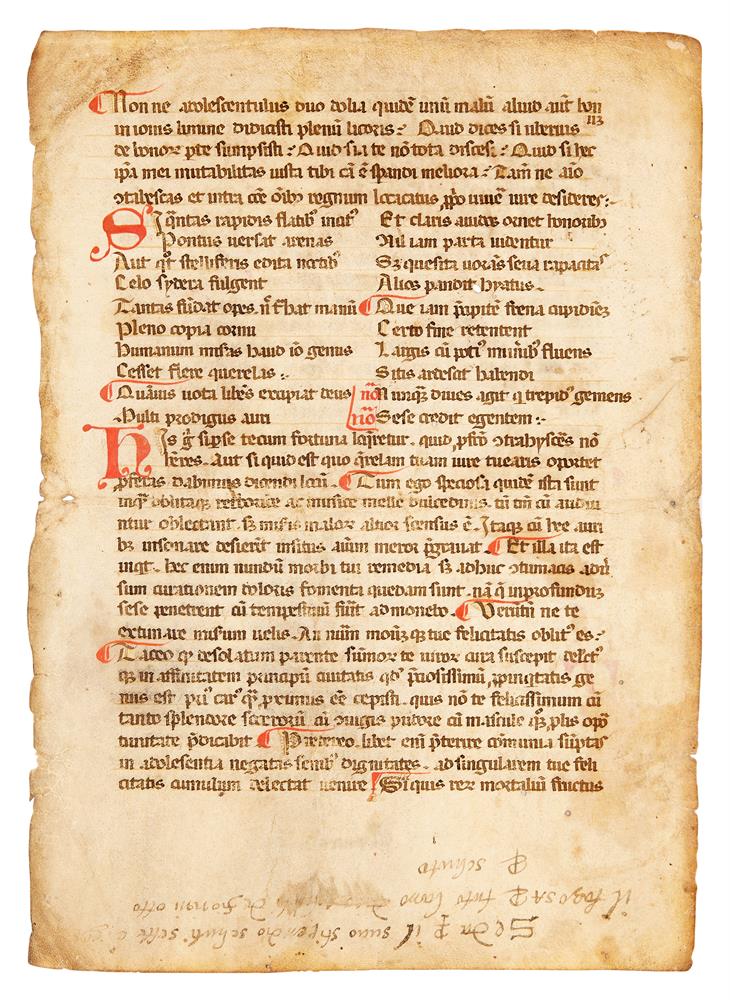 Non ne adolescentulus duo dolia quidē unū malū aliud aūt bon
in iouis limine didicisti plenū licoris? Quid dices si uberius
113
de bonoꝝ ꝑte sūmpsisti? Quid si a te nō tota discessi? Quid si hec
ip̄a mei mutabilitas iusta tibi cā ē sꝑandi meliora? Tam̄ ne aīo
ꝯtabescas et intra cōe ōībꝫ regnum locatus ꝓp̄o uiue iure desideres
Si q̄ntas rapidis flatibꝫ incitꝰ
Pontus uersat arenas
Aut qͦt stelliferis edita noctibꝫ
Celo sydera fulgent
Tantas fūdat opes n̄ ret̄hat manū
Pleno copia cornu
Humanum mis̄as haud iō genus
Cesset flere querelas
Quāuis uota libēs excipiat deus
Multi prodigus auri
Et claris auidos ornet honoribꝫ
Nil iam parta uidentur
Sꝫ quesita uorās seua rapacitas
Alios pandit hyatus
Que iam p̄cipitē frena cupidinē
Certo fine retentent
Largis cū potiꝰ munībꝫ fluens
Sitis ardescit habendi
nō Nunqͣꝫ diues agit q̄ trepidꝰ gemens
Sese credit egentem
His g̊ si ꝓ se tecum fortuna loq̄retur quid ꝓfcō ꝯtrahisceres nō
h̄eres Aut si quid est quo q̄relam tuam iure tuearis oportet
ꝓferas dabimus dicendi locū Tum ego speciosa quidē ista sunt
inqͣꝫ oblitaqꝫ rethorice ac musice melle dulcedinis tū tm̄ cū audiū
ntur oblectant sꝫ mis̄is maloꝝ altior sensus ē Itaqꝫ cū hec auri
bꝫ insonare desierīt insitus aīum meror p̄grauat Et illa ita est
inq̄t hec enim nundū morbi tui remedia sꝫ adhuc ꝯtumacis adū
sum curationem doloris fomenta quedam sunt nā q̄ in profundum
sese penetrent cū tempestiuū fūit admonebo Verūtū ne te
extimare mis̄um uelis An num̄ modūqꝫ tue felicitatis oblitꝰ es
Taceo qꝫ desolatum parente sūmoꝝ te uiroꝝ cura suscepit delectꝰ
qꝫ in affinitatem principū ciuitatis qd̄ p̄ciosissimū ꝓpinq̄tatis ge
nus est priꝰ carꝰ qͣꝫ proximus eē cepisti quis nō te felicissimum cū
tanto splendore soceroꝝ cū ꝯiugis pudore cū mascule qͦqꝫ ꝓlis opor
tunitate p̄dicabit Pretereo libet enī p̄terire cōmunia sūptas
in adolescentia negatas senibꝫ dignitates ad singularem tue feli
citatis cumulum delectat uenire Si quis reꝝ mortaliū fructus
ꝑ schuto
il fogosa ꝑ tuto di gorni otto
Se da ꝑ il suno stipendio schuti sette